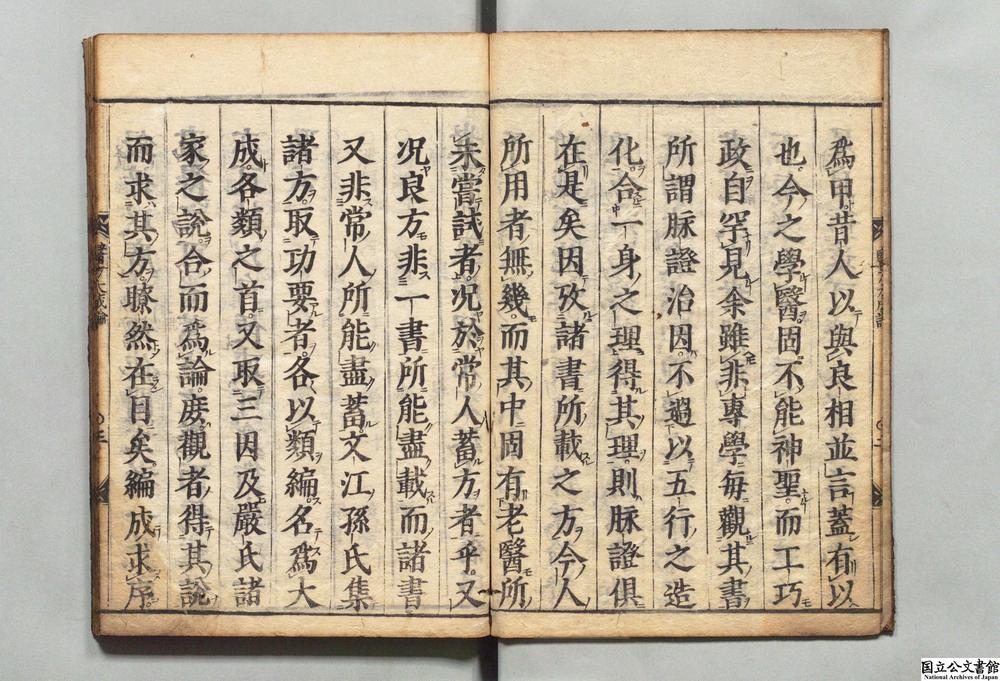 為甲昔人以與良相並言蓋有以
也今之學醫固不能神聖而工巧
政自罕見余雖非專學每觀其書
所謂脉證治因不過以五行之造
化合一身之理得其理則脉證俱
在是矣因攷諸書所載之方今人
所用者無幾而其中固有老醫所
未嘗試者况於常人蓄方者乎又
况良方非一書所能盡載而諸書
又非常人所能盡蓄文江孫氏集
諸方取功要者各以類編名為大
成各類之首又取三因及嚴氏諸
家之說合而為論庻觀者得其說
而求其方瞭然在目矣編成求序
國立公文書館
National Archives of Japan